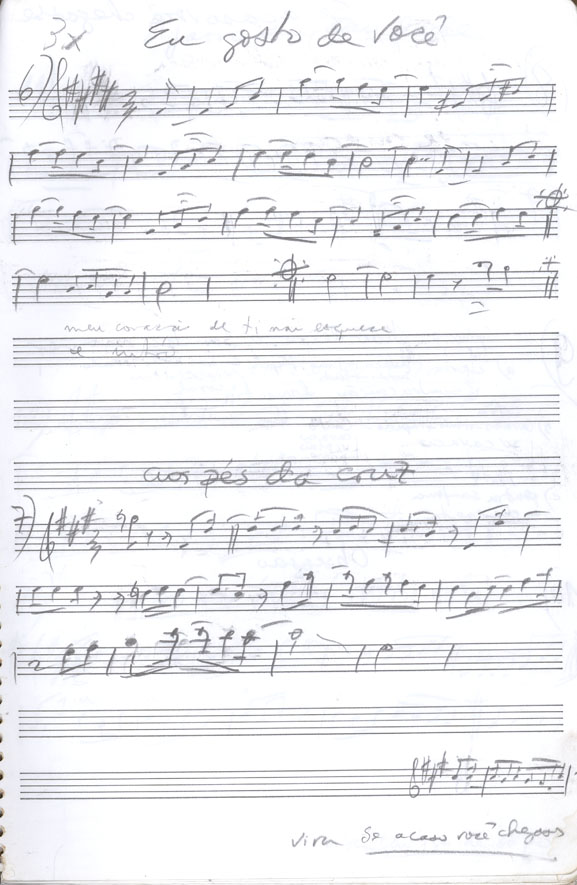 3x Eu gosto de você
6)
meu coração de ti não esquece
e
aos pés da cruz
7)
2
vira Se acaso você chegasse